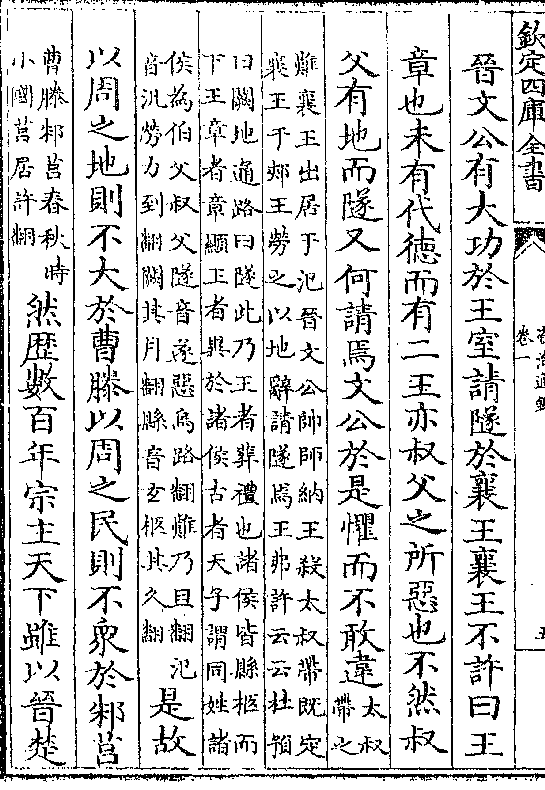 欽定四庫全書
資治通鑑
卷一
五
晉文公有大功於王室請隧於襄王襄王不許曰王
章也未有代徳而有二王亦叔父之所惡也不然叔
父有地而隧又何請焉文公於是懼而不敢違
太叔
帶之
難襄王出居于氾晉文公帥師納王殺太叔帶既定
襄王于郟王勞之以地辭請隧焉王弗許云云杜預
曰闕地通路曰隧此乃王者葬禮也諸侯皆縣柩而
下王章者章顯王者異於諸侯古者天子謂同姓諸
侯為伯父叔父隧音遂惡烏路翻難乃旦翻氾
音汎勞力到翻闕其月翻縣音玄柩其久翻
是故
以周之地則不大於曹滕以周之民則不衆於邾莒
曹滕邾莒春秋時
小國莒居許翻
然歴數百年宗主天下雖以晉楚